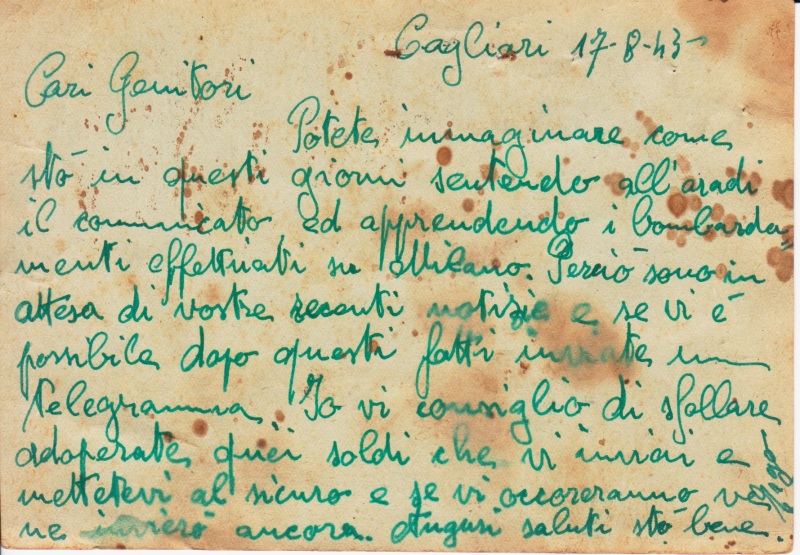 Cagliari 17-8-43
Cari Genitori
Potete immaginare come
stò in questi giorni sentendo all'aradi
il comunicato ed apprendendo i bombarda-
menti effettuati su Milano. Perciò sono in
attesa di vostre recenti notizie e se vi è
possibile dopo questi fatti inviate un
telegramma Io vi consiglio di sfollare
adoperate quei soldi che vi inviai e
mettetevi al sicuro e se vi occoreranno ve
ne invierò ancora. Auguri saluti stò bene.